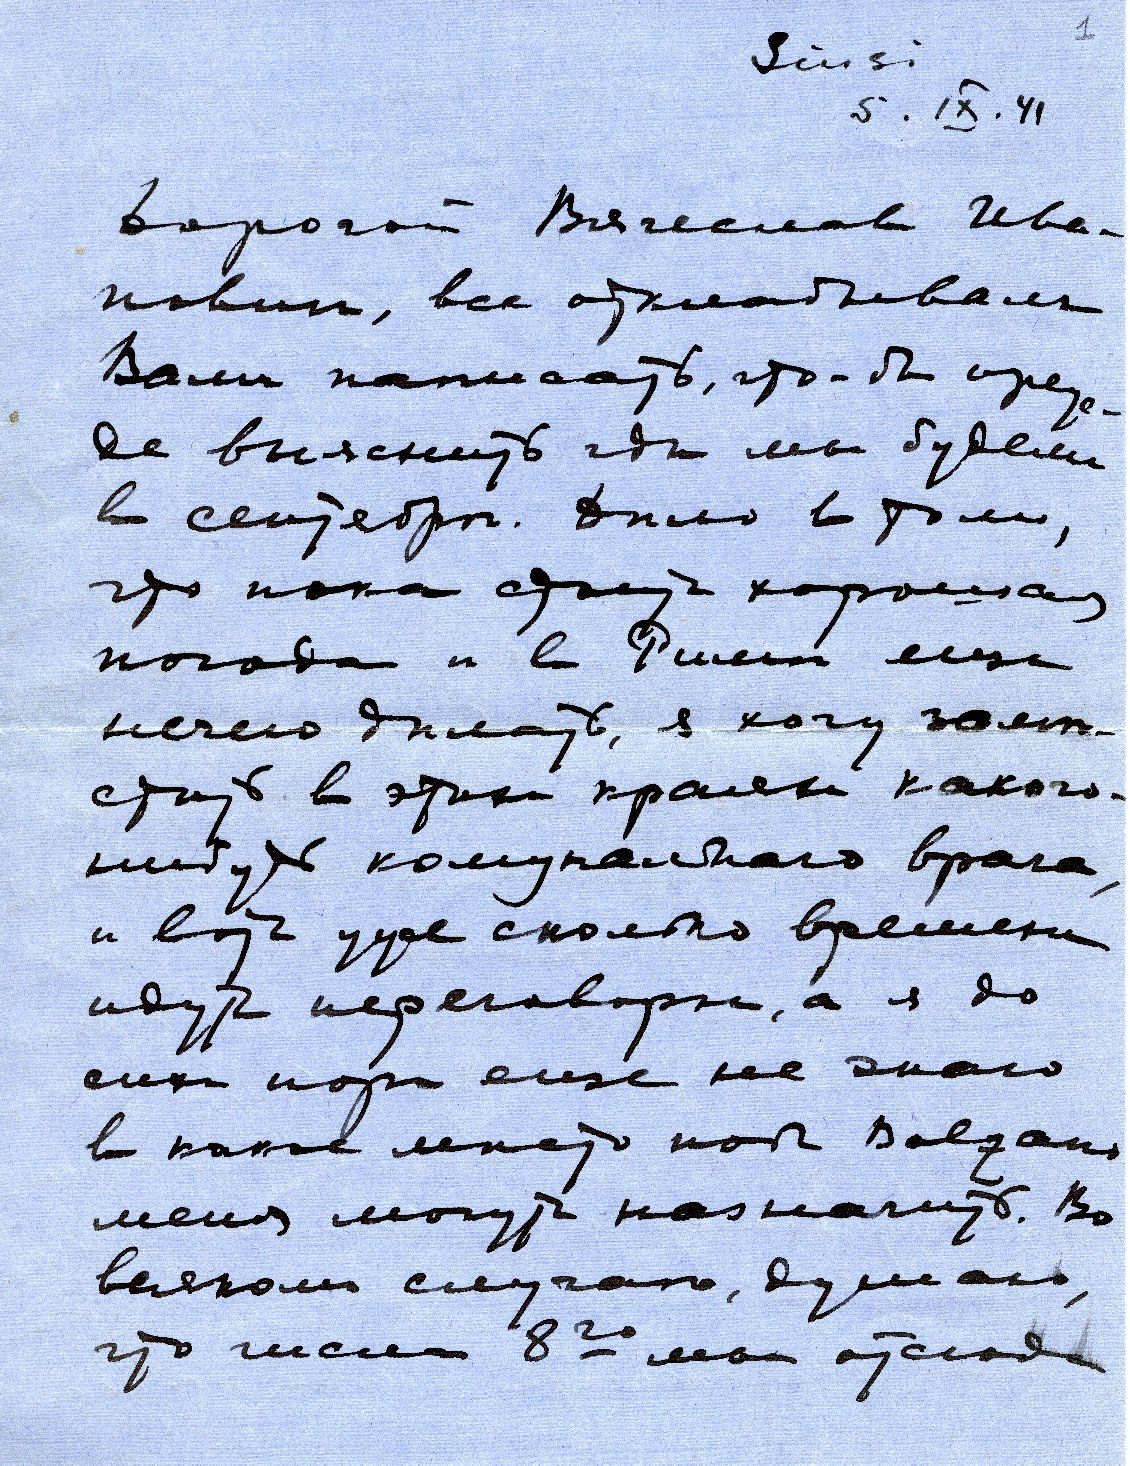 1
Siusi
5. IX. 41
Дорогой Вячеслав Ива-
нович, все откладывалъ
Вамъ написать, что-бы преж-
де выяснить гдѣ мы будемъ
в сентябрѣ. Дѣло в томъ,
что пока стоитъ хорошая
погода и в Римѣ еще
нечего дѣлать, я хочу замѣ-
стить в этихъ краяхъ какого-
нибудь комунальнаго врача,
и вотъ уже сколько времени
идутъ переговоры, а я до
сихъ поръ еще не знаю
в какое мѣсто подъ Bolzano
меня могутъ назначить. Во
всякомъ случаѣ, думаю,
что числа 8го мы отсюда